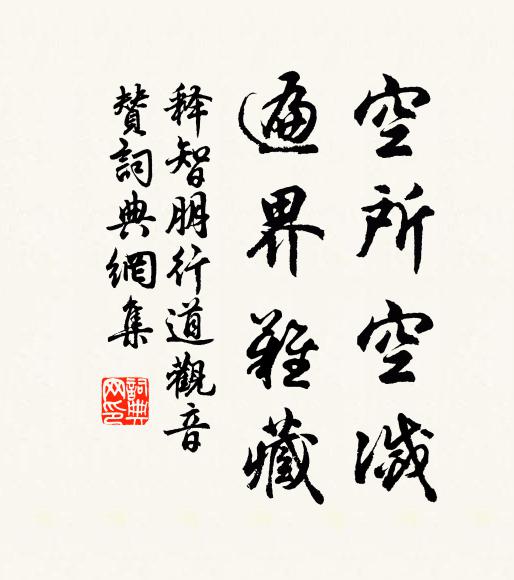 空所空滅
遍界難藏
释智朋行道觀音
赞詞典網集
詞典网印